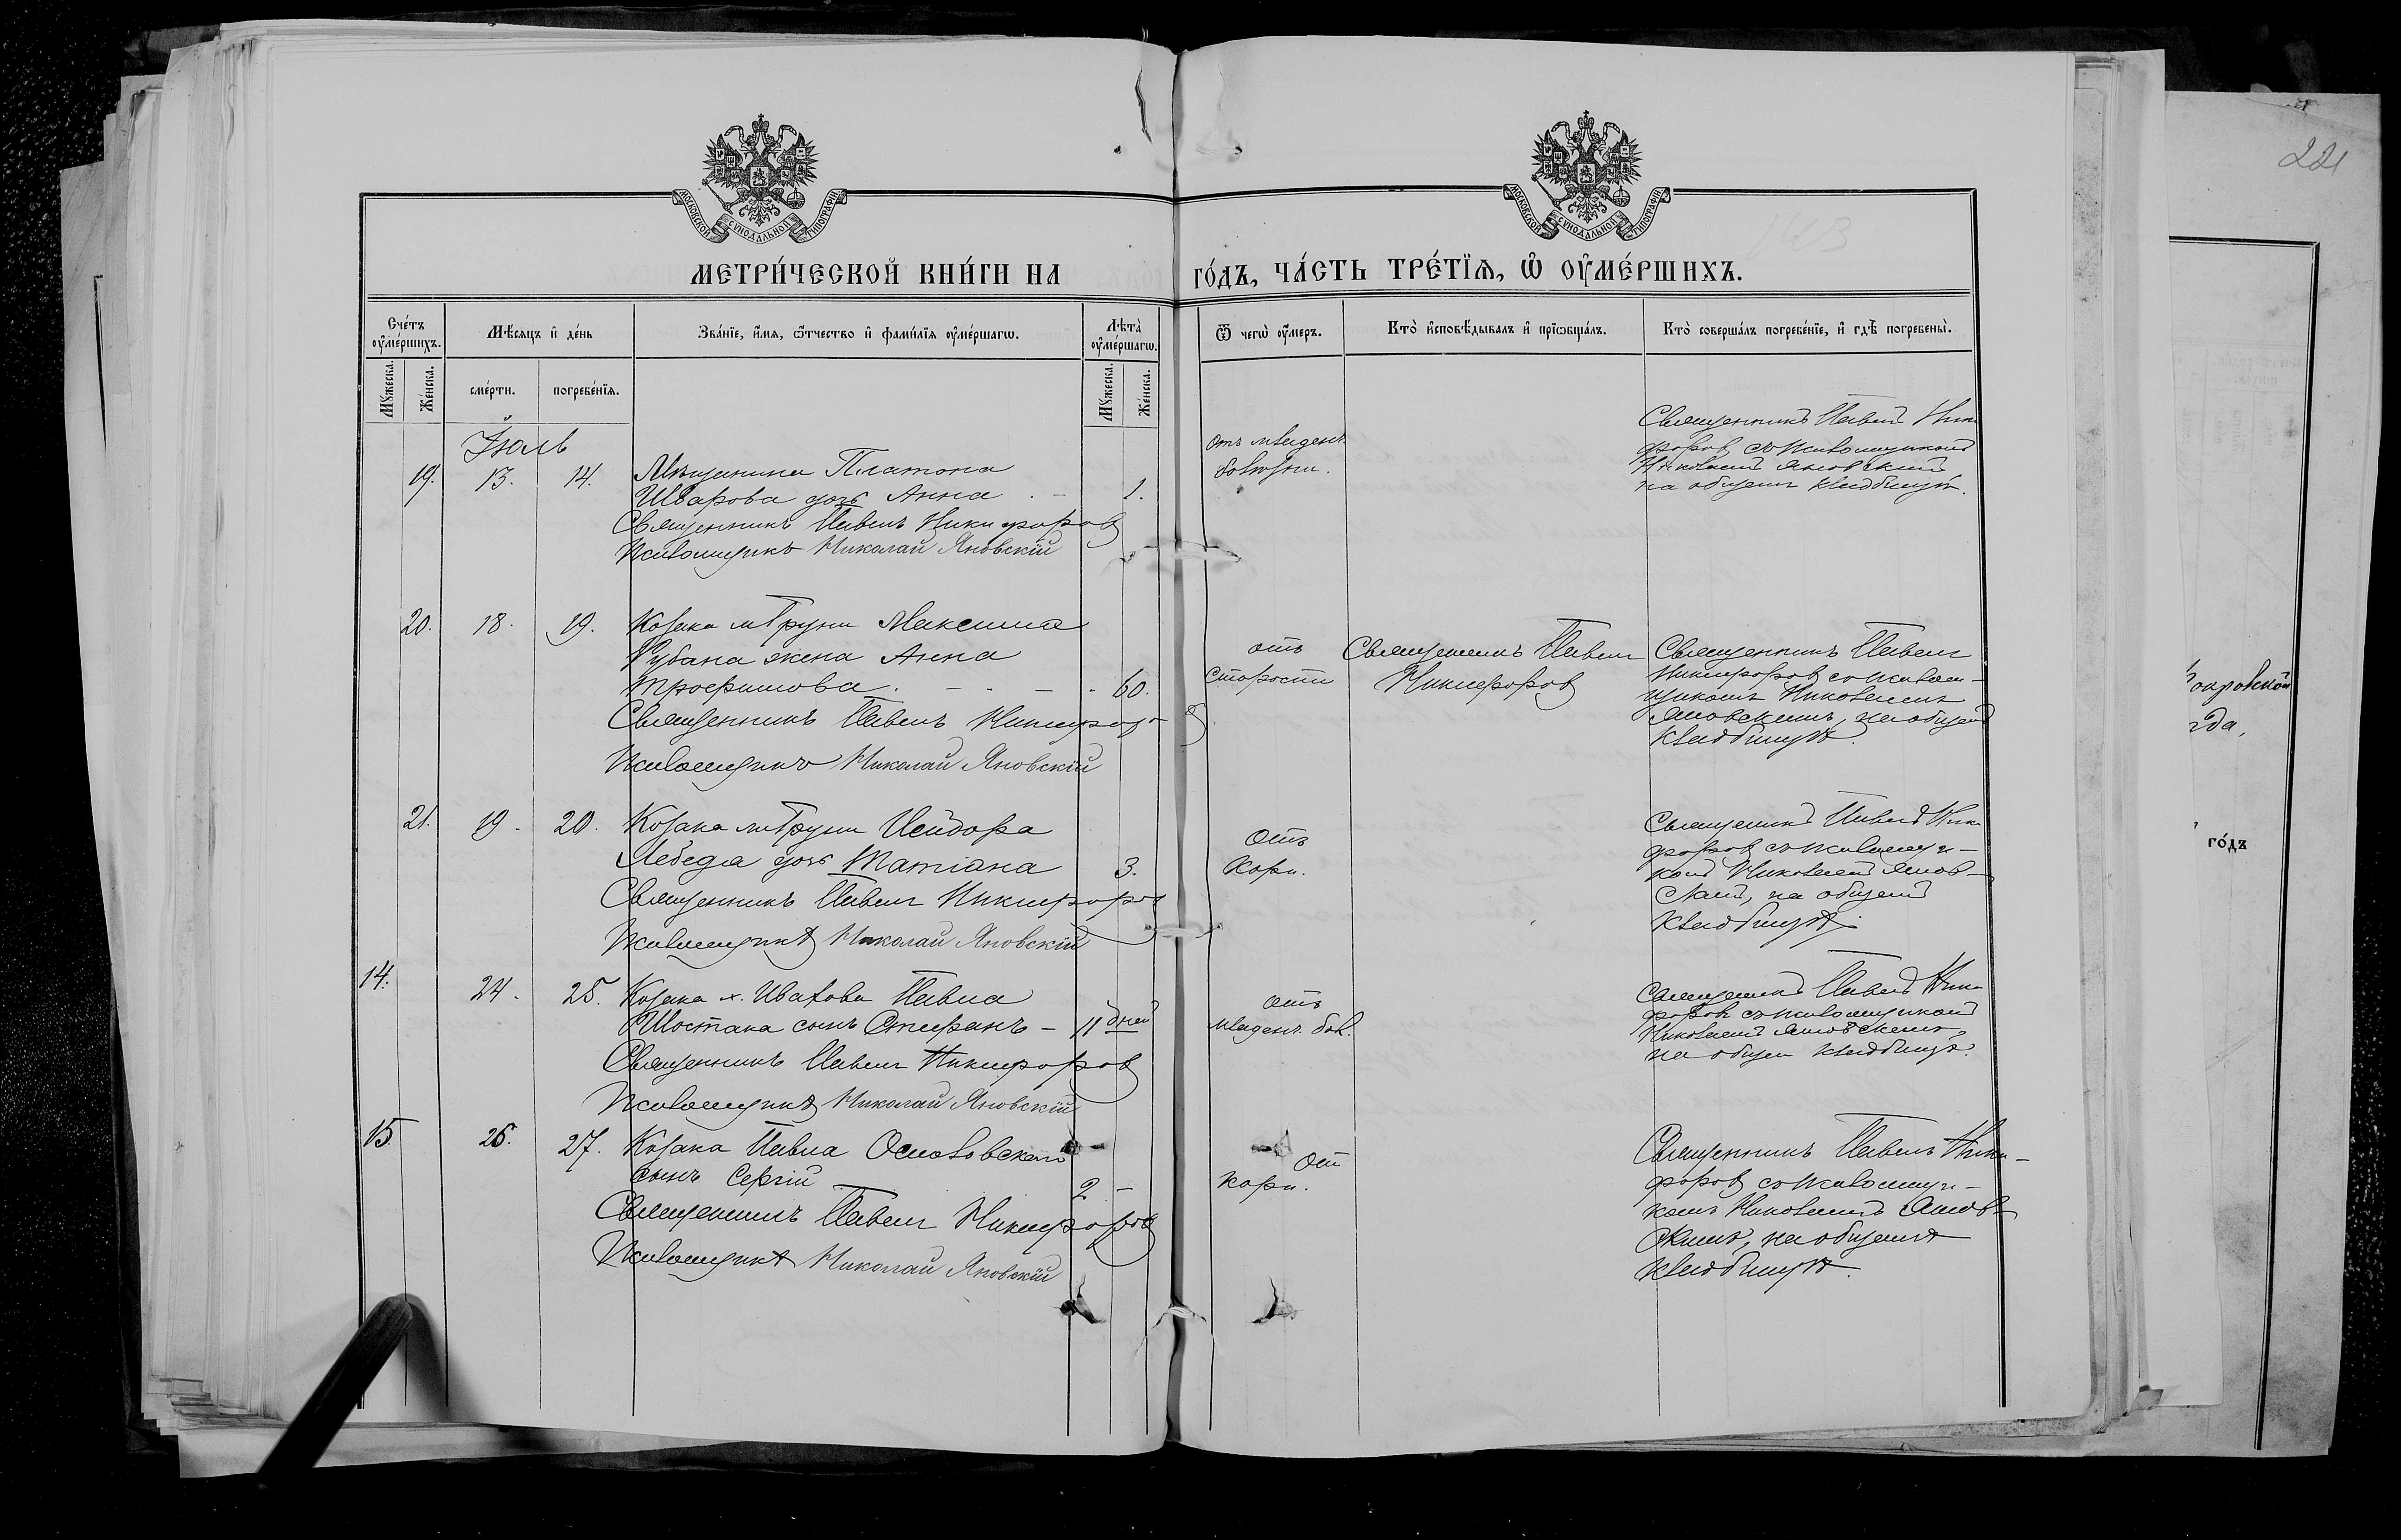 221
МОСКОВСКОЙ СѴНОДАЛЬНОЙ ТИПОГРАФІИ
МОСКОВСКОЙ СѴНОДАЛЬНОЙ ТИПОГРАФІИ
МЕТРИ́ЧЕСКОЙ КНИ́ГИ НА
ГО́ДЪ, ЧА́СТЬ ТРЕ́ТІѦ, Ѡ҆ ОУ҆МЕ́РШИХЪ.
Сче́тъ оу҆ме́ршихъ.
Мѣ́сѧцъ и҆ де́нь
Зва́нїе, и҆́мѧ, ѻ҆́тчество и҆ фами́лїѧ оу҆ме́ршагѡ.
Лѣ́та оу҆ме́ршагѡ.
Ѿ чегѡ̀ оу҆́меръ.
Кто̀ и҆сповѣ́дывалъ и҆ прїѡбща́лъ.
Кто̀ соверша́лъ погребе́нїе, и҆ гдѣ̀ погребены̀.
Мꙋ́жеска.
Же́нска.
сме́рти.
погребе́нїѧ.
Мꙋ́жеска.
Же́нска.
Іюль
19. 13. 14. Мѣщанина Платона
Шварова дочь Анна 1.
Священникъ Павелъ Никифоровъ
Псаломщикъ Николай Яновскій
отъ младен.
болѣзни.
Священникъ Павелъ Ники
форовъ съ псаломщикомъ
Николаемъ Яновскимъ
на общемъ кладбищѣ.
20. 18. 19. Козака м Груни Максима
Рубана жена Анна
Трофимова. 60.
Священникъ Павелъ Никифоровъ
Псаломщикъ Николай Яновскій
отъ
старости
Священникъ Павелъ
Никифоровъ
Священникъ Павелъ
Никифоровъ съ псалом-
щикомъ Николаемъ
Яновскимъ, на общемъ
кладбищѣ.
21. 19. 20. Козака м Груни Исидора
Лебедя дочь Татіана 3.
Священникъ Павелъ Никифоровъ
Псаломщикъ Николай Яновскій
Отъ
кори.
Священникъ Павелъ Ники
форовъ съ псаломщи-
комъ Николаемъ Янов-
скимъ, на общемъ
кладбищѣ.
14. 24. 25. Козака х. Павла
Шостака сынъ Стефанъ - 11 дней
Священникъ Павелъ Никифоровъ
Псаломщикъ Николай Яновскій
отъ
младен. бол.
Священникъ Павелъ Ники
форовъ съ псаломщикомъ
Николаемъ Яновскимъ,
на общем кладбищѣ.
15. 26. 27. Козака Павла
сынъ Сергій 2 -
Священникъ Павелъ Никифоровъ
Псаломщикъ Николай Яновскій
От
кори.
Священникъ Павелъ Ники-
форовъ съ псаломщи-
комъ Николаемъ Янов-
скимъ, на общемъ
кладбищѣ.
года,
го́дъ